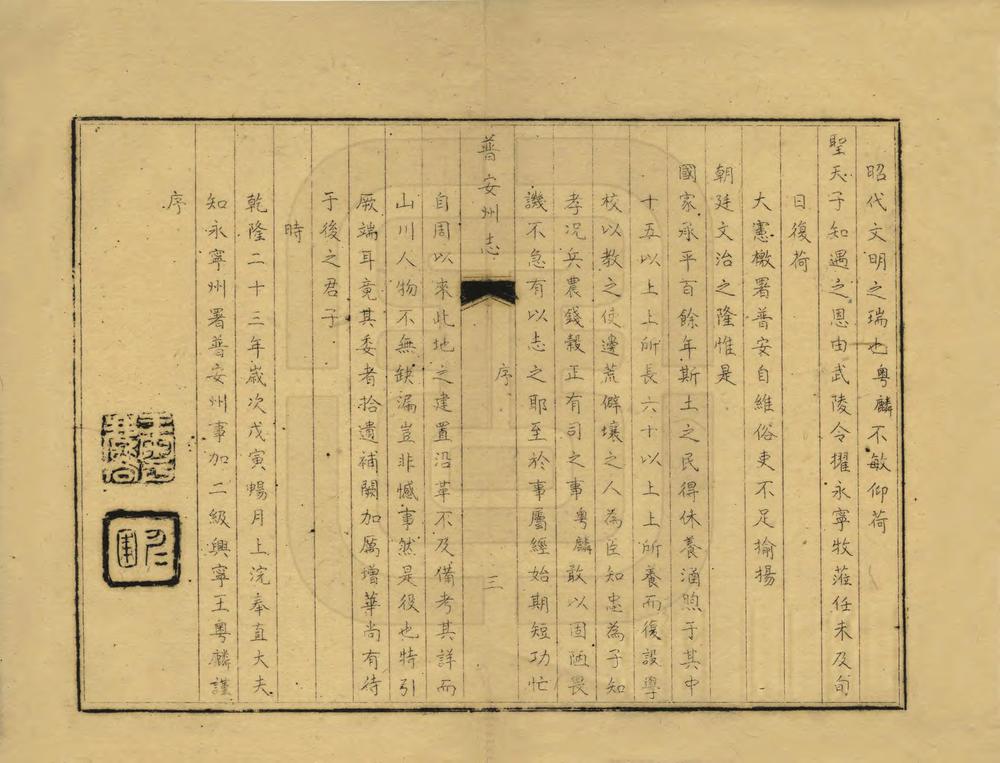 昭代文明之瑞也粵麟不敏仰荷
聖天子知遇之恩由武陵令擢永寧牧蒞任未及旬
日復荷
大憲檄署普安自維俗吏不足揄揚
朝廷文治之隆惟是
國家承平百餘年斯土之民得休養涵煦于其中
十五以上上所長六十以上上所養而復設學
校以教之使邊荒僻壤之人為臣知忠為子知
孝况兵農錢穀正有司之事粵麟敢以固陋畏
譏不急有以志之耶至於事屬經始期短功忙
普安州志
序
三
自周以來此地之建置沿革不及備考其詳而
山川人物不無缺漏豈非憾事然是役也特引
厥端耳竟其委者拾遺補闕加厲增華尚有待
于後之君子
時
乾隆二十三年歲次戊寅暢月上浣奉直大夫
知永寧州署普安州事加二級興寧王粵麟謹
序